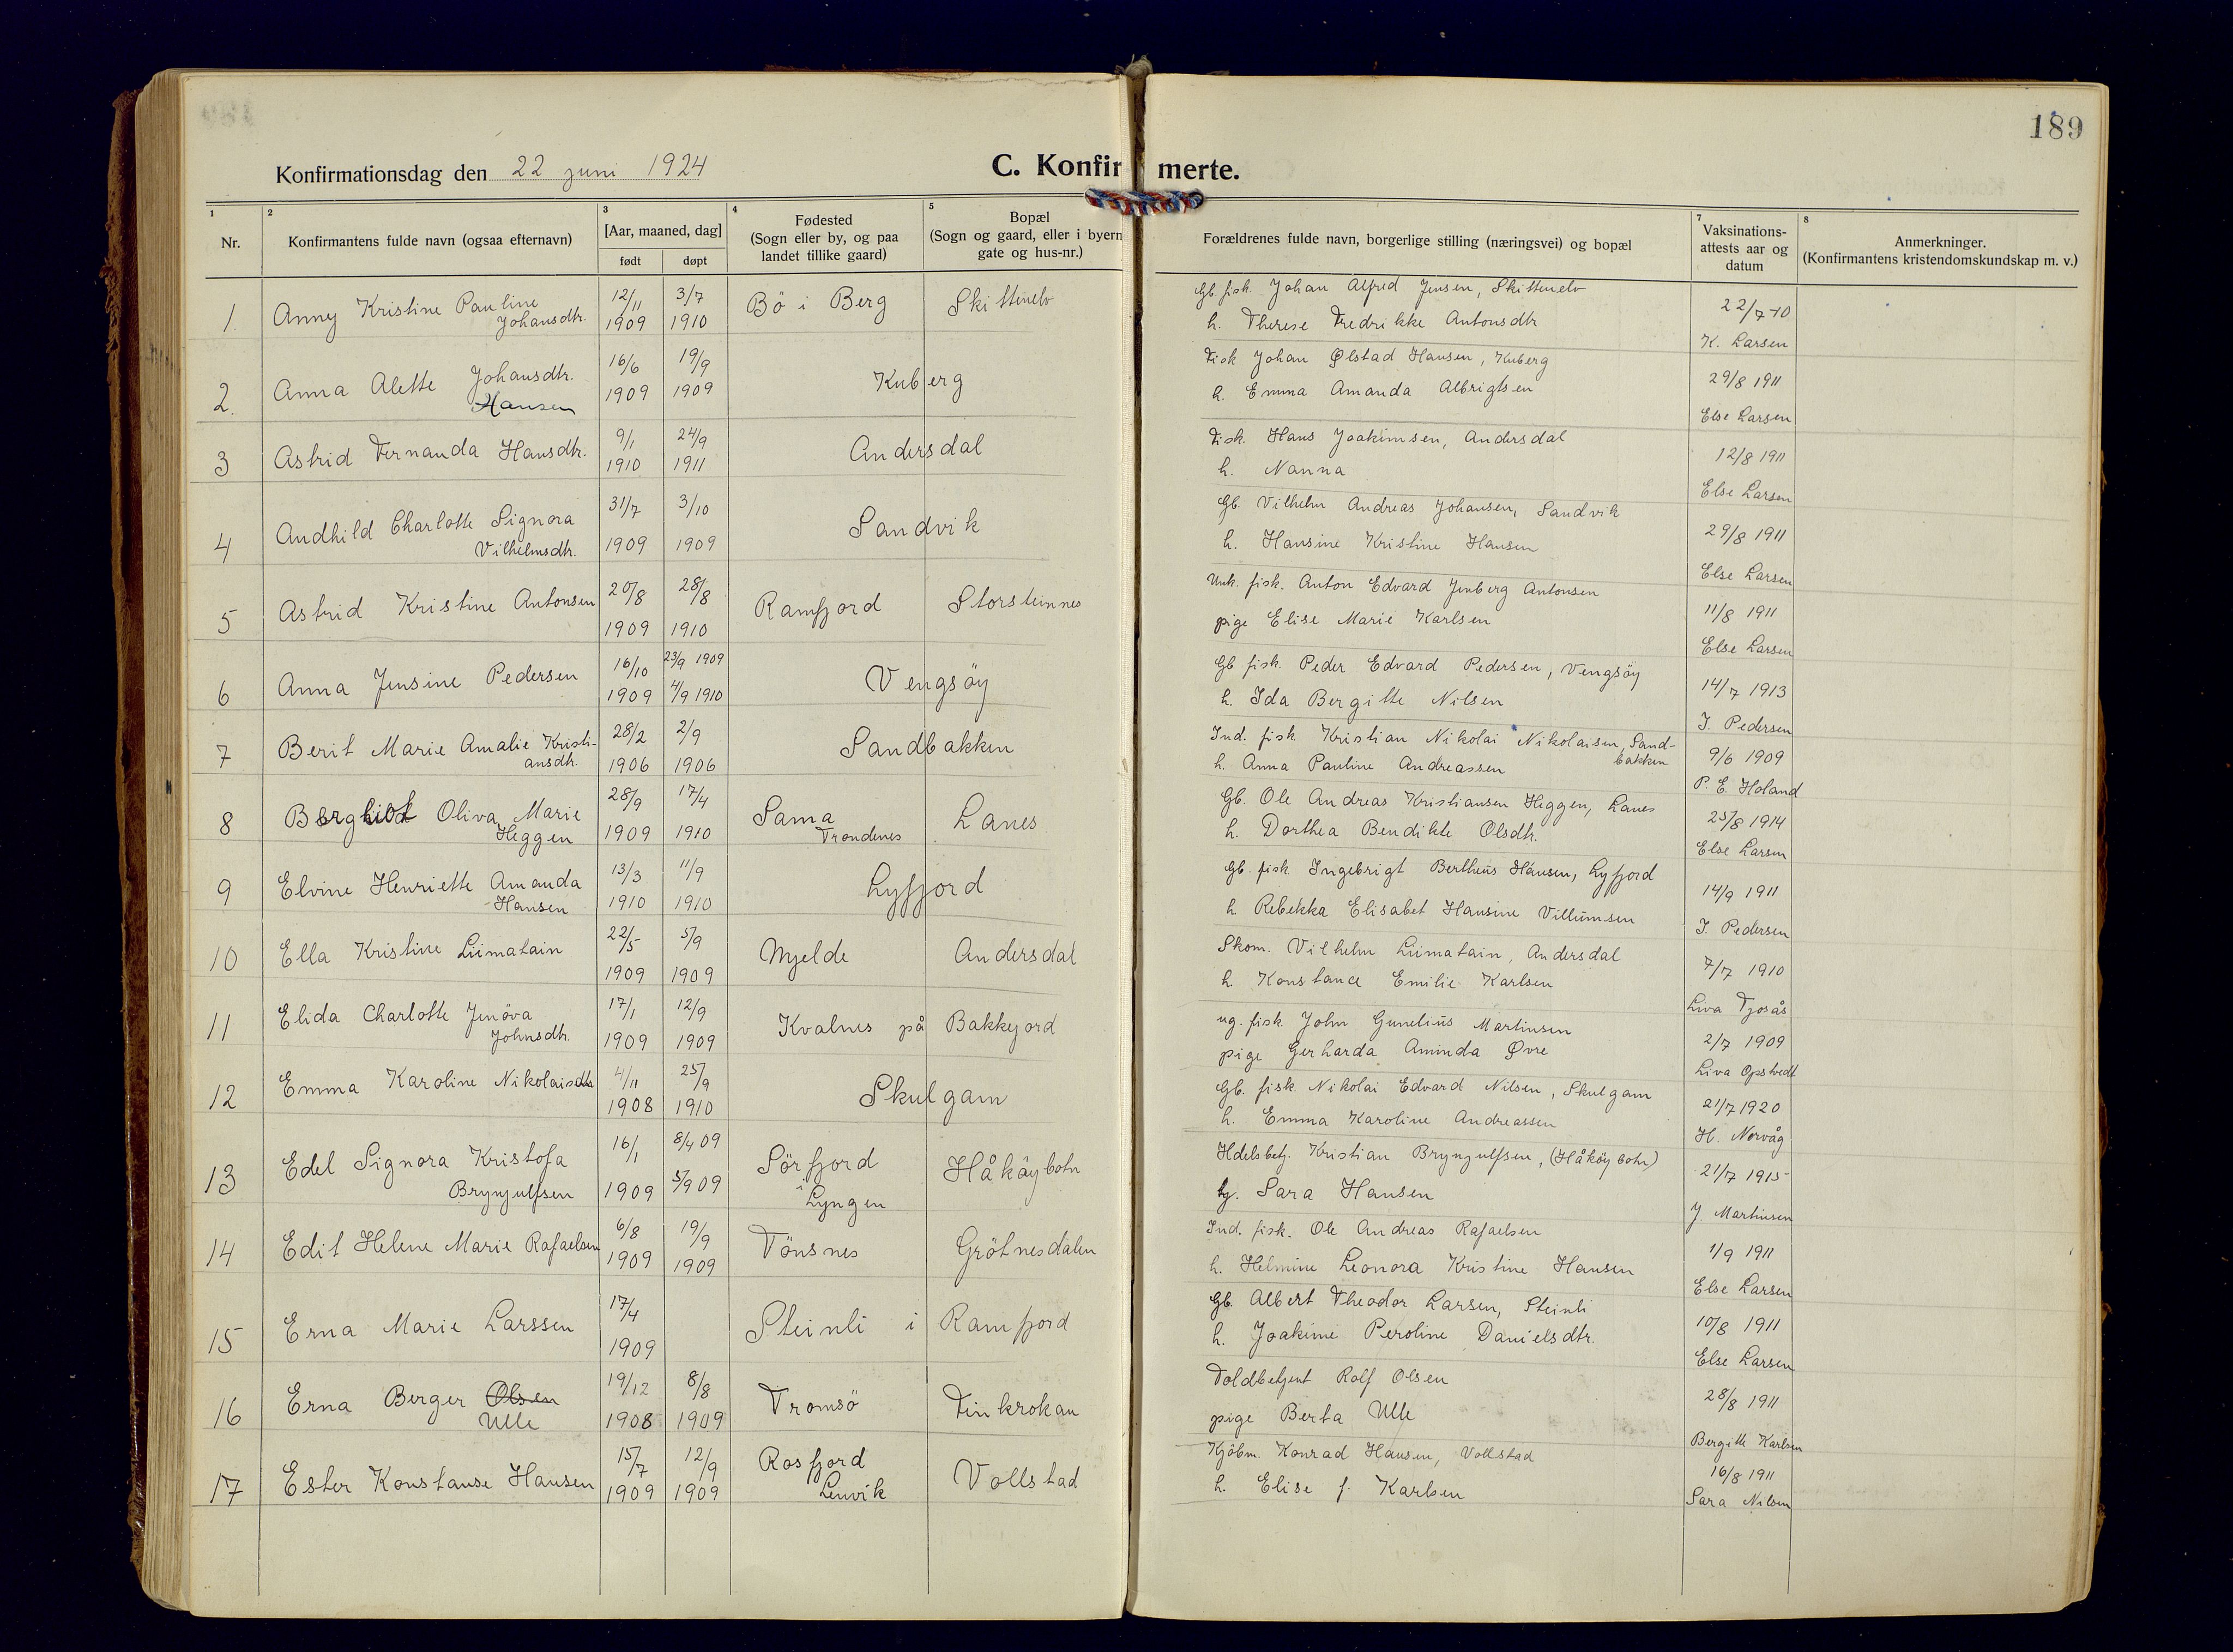 189
Konfirmationsdag den 22 juni 1924
C. Konfirmerte.
1 2 3 4 5 7 8
Nr.
Konfirmantens fulde navn (ogsaa efternavn)
[Aar, maaned, dag]
født døpt
Fødested
(Sogn eller by, og paa
landet tillike gaard)
Bopæl
(Sogn og gaard, eller i byern
gate og hus-nr.)
Forældrenes fulde navn, borgerlige stilling (næringsvei) og bopæl
Vaksinations-
attests aar og
datum
Anmerkninger.
(Konfirmantens kristendomskundskap m. v.)
1 Anny Kristine Pauline 12/11 3/7 Bö i Berg Skittenelv Gb. fisk. Johan Alfred Jensen, Skittenelv 22/7-10
Johansdtr. 1909 1910 h. Therese Fredrikke Antonsdtr K. Larsen
2. Anna Alette Johansdtr. 16/6 19/9 Kuberg Fisk Johan Ølstad Hansen, Kuberg 29/8 1911
Hansen 1909 1909 h. Emma Amanda Albrigtsen Else Larsen
3 Astrid Fernanda Hansdtr. 9/1 24/9 Andersdal Fisk. Hans Joakimsen, Andersdal 12/8 1911
1910 1911 h. Nanna Else Larsen
4 Andhild Charlotte Signora 31/7 3/10 Sandvik Gb. Vilhelm Andreas Johansen, Sandvik 29/8 1911
Vilhelmsdtr. 1909 1909 h. Hansine Kristine Hansen Else Larsen
5 Astrid Kristine Antonsen 20/8 28/8 Ramfjord Storsteinnes Unk. fisk. Anton Edvard Jenberg Antonsen 11/8 1911
1909 1910 pige Elise Marie Karlsen Else Larsen
6 Anna Jensine Pedersen 16/10 23/9 1909 Vengsöy Gb fisk. Peder Edvard Pedersen, Vengsöy 14/7 1913
1909 4/9 1910 h. Ida Bergitte Nilsen J. Pedersen
7 Berit Marie Amalie Kristi- 28/2 2/9 Sandbakken Ind. fisk Kristian Nikolai Nikolaisen, Sand- 9/6 1909
ansdtr. 1906 1906 h. Anna Pauline Andreassen bakken P. E. Holand
8 Bergliot Oliva Marie 28/9 17/4 Sama Lanes Gb. Ole Andreas Kristiansen Heggen, Lanes 25/8 1914
Heggen 1909 1910 Trondenes h. Dorthea Bendikte Olsdtr. Else Larsen
9 Elvine Henriette Amanda 13/3 11/9 Lyfjord Gb. fisk Ingebrigt Bertheus Hansen, Lyfjord 14/9 1911
Hansen 1910 1910 h Rebekka Elisabet Hansine Villumsen J. Pedersen
10 Ella Kristine Liimatain 22/5 5/9 Mjelde Andersdal Skom. Vilhelm Liimatain, Andersdal 7/7 1910
1909 1909 h. Konstance Emilie Karlsen Liva Tjosås
11 Elida Charlotte Jenöva 17/1 12/9 Kvalnes på Bakkejord ug. fisk John Gunelius Martinsen 2/7 1909
Johnsdtr. 1909 1909 pige Gerharda Aminda Øvre Liva Opstvedt
12 Emma Karoline Nikolaisdtr 4/11 25/9 Skulgam Gb. fisk. Nikolai Edvard Nilsen, Skulgam 21/7 1920
1908 1910 h. Emma Karoline Andreassen H. Norvåg
13 Edel Signora Kristofa 16/1 8/4 09 Sörfjord Håköybotn Hdelsbetj. Kristian Brynjulfsen, (Håköybotn) 21/7 1915
Brynjulfsen 1909 5/9 09 i Lyngen h. Sara Hansen J. Martinsen
14 Edit Helene Marie Rafaelsen 6/8 19/9 Tönsnes Grötnesdalen Ind. fisk. Ole Andreas Rafaelsen 1/9 1911
1909 1909 h. Helmine Leonora Kristine Hansen Else Larsen
15 Erna Marie Larssen 17/4 Steinli i Ramfjord Gb. Albert Theodor Larsen, Steinli 10/8 1911
1909 h. Joakime Peroline Danielsdtr. Else Larsen
16 Erna Berger Olsen 19/12 8/8 Tromsö Finkrokan Toldbetjent Rolf Olsen 28/8 1911
Ulle 1908 1909 pige Berta Ulle Bergitte Karlsen
17 Ester Konstanse Hansen 15/7 12/9 Rosfjord Vollstad Kjöbm. Konrad Hansen, Vollstad 16/8 1911
1909 1909 Lenvik h. Elise f. Karlsen Sara Nilsen